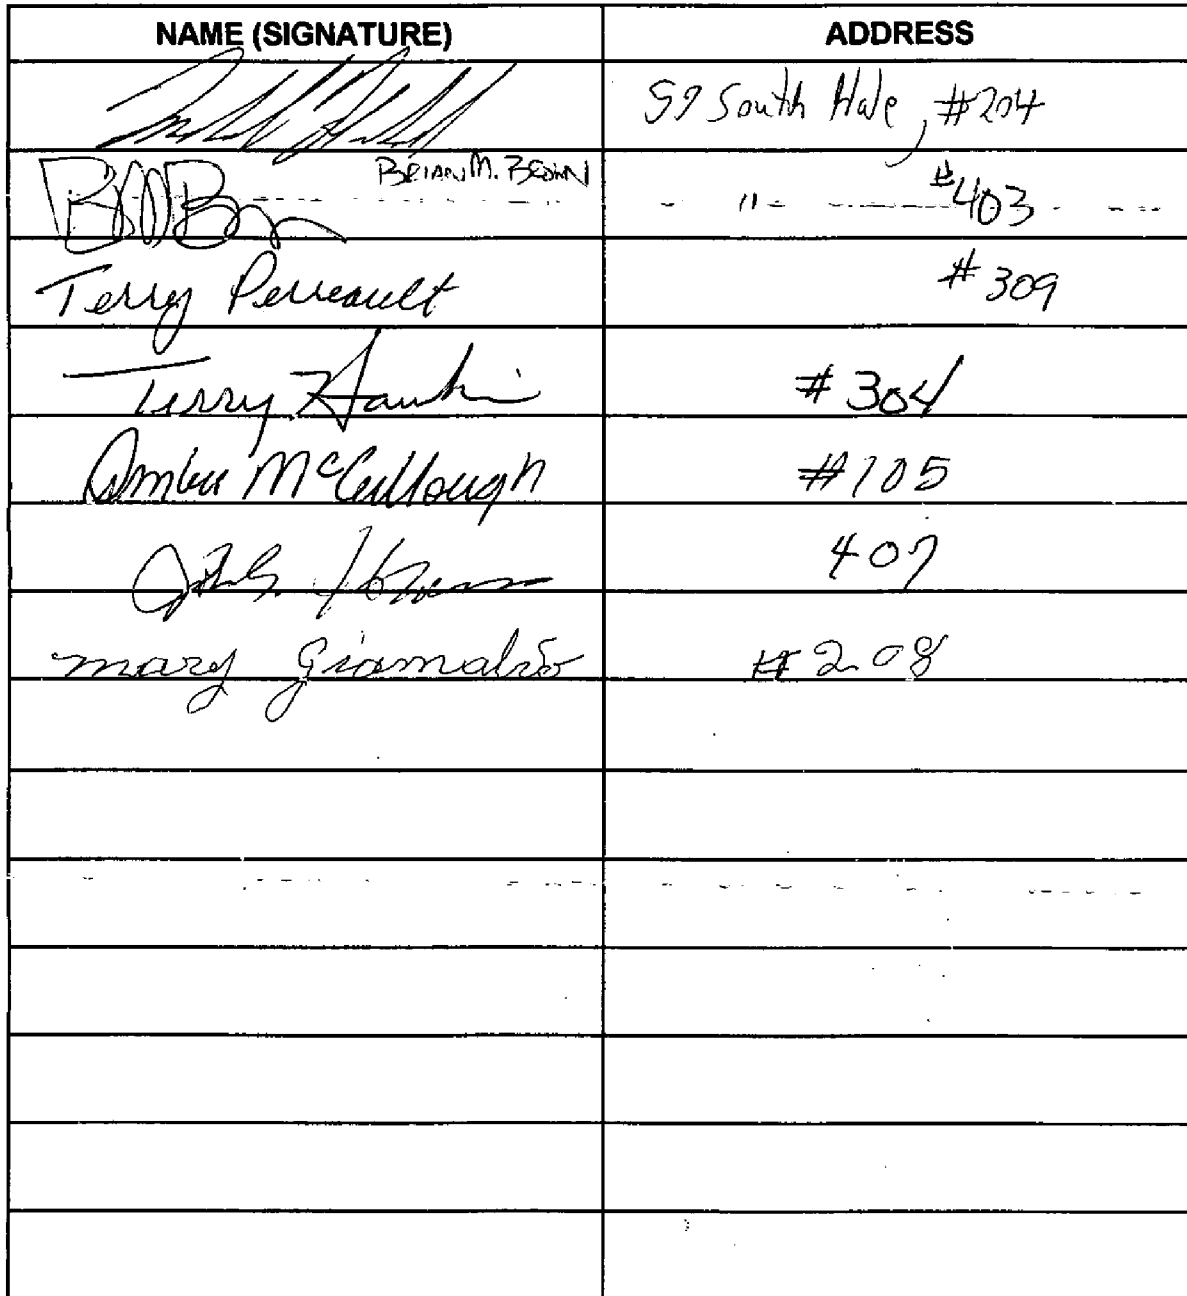 NAME (SIGNATURE) ADDRESS
59 South Hale, #204
BRIAN M. BROWN " #403
Terry Perreault #309
Terry Hawkin #304
Amber McCullough #105
407
mary #208